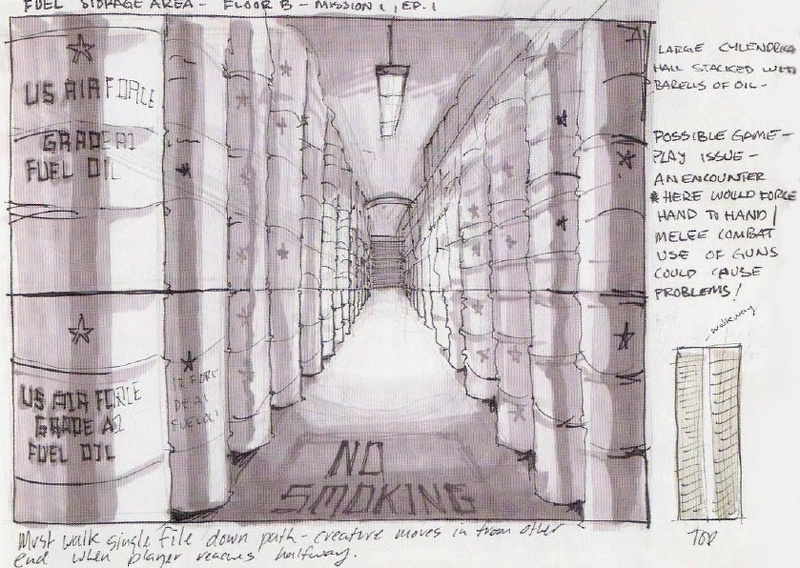 FUEL STORAGE AREA - FLOOR B - MISSION 1, EP. 1
US AIR FORCE
GRADE A1
FUEL OIL
US AIR FORCE
GRADE A2
FUEL OIL
AIR FORC
DE A1
FUEL OIL
NO
SMOKING
LARGE CYLENDRICA
HALL STACKED WITH
BARELLS OF OIL -
POSSIBLE GAME-
PLAY ISSUE -
AN ENCOUNTER
* HERE WOULD FORCE
HAND TO HAND /
MELEE COMBAT
USE OF GUNS
COULD CAUSE
PROBLEMS!
- walkway
TOP
Must walk single file down path - creature moves in from other
end when player reaches halfway.